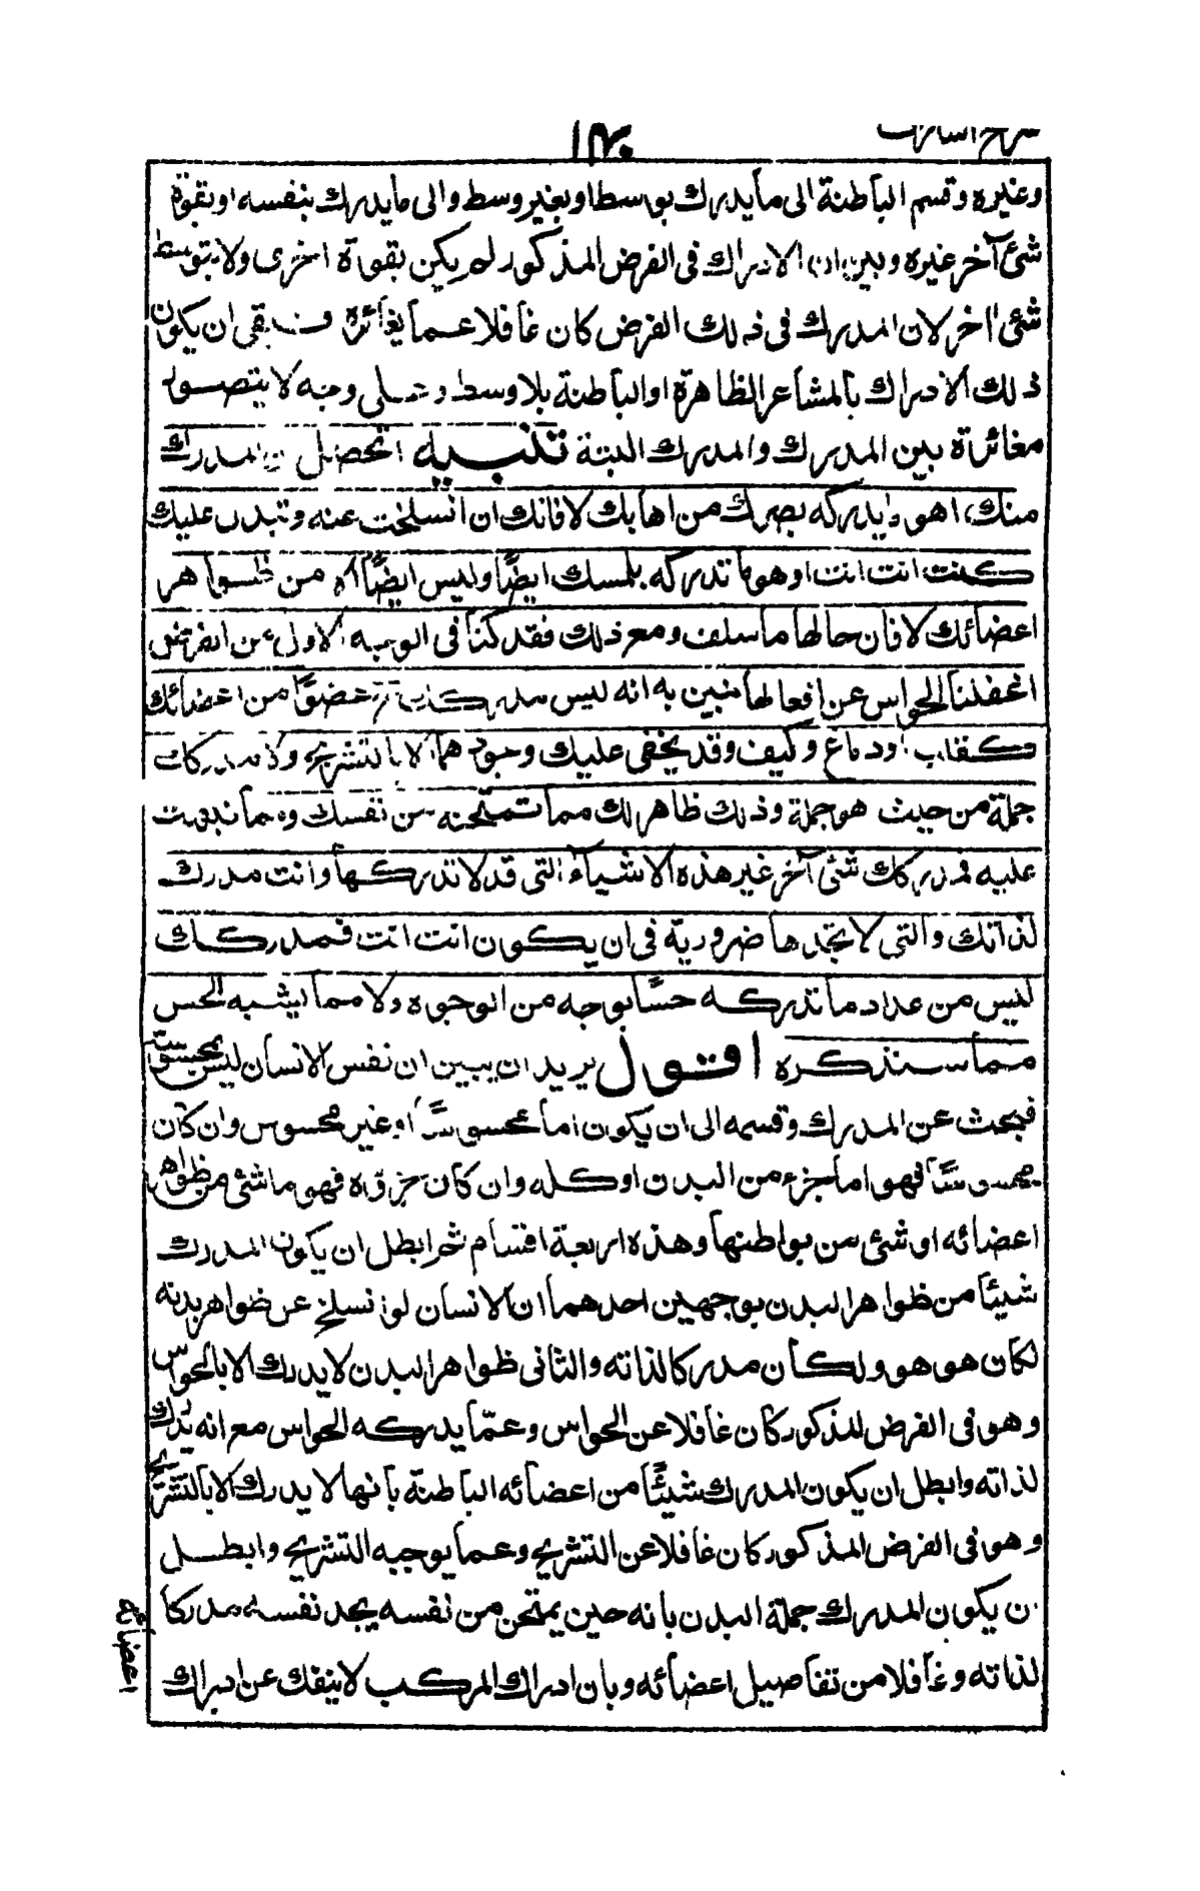 شرح اشارات
۱۴۰
وغيره وقسم الباطنة الى ما يدرك بوسط او بغير وسط والى ما يدرك بنفسه او بقوة
شئ آخر غيره وبين ان الادراك فى الفرض المذكور لم يكن بقوة اخرى ولا بتوسط
شئ اخر لان المدرك فى ذلك الفرض كان غافلا عما يغائره فبقى ان يكون
ذلك الادراك بالمشاعر الظاهرة او الباطنة بلا وسط وعلى وجه لا يتصور
مغائرة بين المدرك والمدرك البتة تنبيه اتحصل ان المدرك
منك اهو ما يدركه بصرك من اهابك لا فانك ان انسلخت عنه وتبدل عليك
كنت انت انت او هو ما تدركه بلمسك ايضًا وليس ايضًا الا من ظواهر
اعضائك لا فان حالها ما سلف ومع ذلك فقد كنا فى الوجه الاول من الفرض
اغفلنا الحواس عن افعالها فبين به انه ليس مدركك عضوًا من اعضائك
كقلب او دماغ وكيف وقد يخفى عليك وجودهما الا بالتشريح ولا مدركك
جملة من حيث هو جملة وذلك ظاهر لك مما تمتحنه من نفسك ومما نبهت
عليه فمدركك شئ آخر غير هذه الاشياء التى قد لا تدركها وانت مدرك
لذاتك والتى لا تجدها ضرورية فى ان يكون انت انت فمدركك
ليس من عداد ما تدركه حسًا بوجه من الوجوه ولا مما يشبه الحس
مما سنذكره اقول يريد ان يبين ان نفس الانسان ليس بمحسوسة
فبحث عن المدرك وقسمه الى ان يكون اما محسوسًا او غير محسوس وان كان
محسوسًا فهو اما جزء من البدن او كله وان كان جزؤه فهو ما شئ من ظواهر
اعضائه او شئ من بواطنها وهذه اربعة اقسام ثم ابطل ان يكون المدرك
شيئًا من ظواهر البدن بوجهين احدهما ان الانسان لو انسلخ عن ظواهر بدنه
لكان هو هو ولكان مدركا لذاته والثانى ظواهر البدن لا يدرك الا بالحواس
وهو فى الفرض المذكور كان غافلا عن الحواس وعمّا يدركه الحواس مع انه يدرك
لذاته وابطل ان يكون المدرك شيئًا من اعضائه الباطنة بانها لا يدرك الا بالتشريح
وهو فى الفرض المذكور كان غافلا عن التشريح وعما يوجبه التشريح وابطل
ن يكون المدرك جملة البدن بانه حين يمتحن من نفسه يجد نفسه مدركا
لذاته وغافلا من تفاصيل اعضائه وبان ادراك المركب لا ينفك عن ادراك